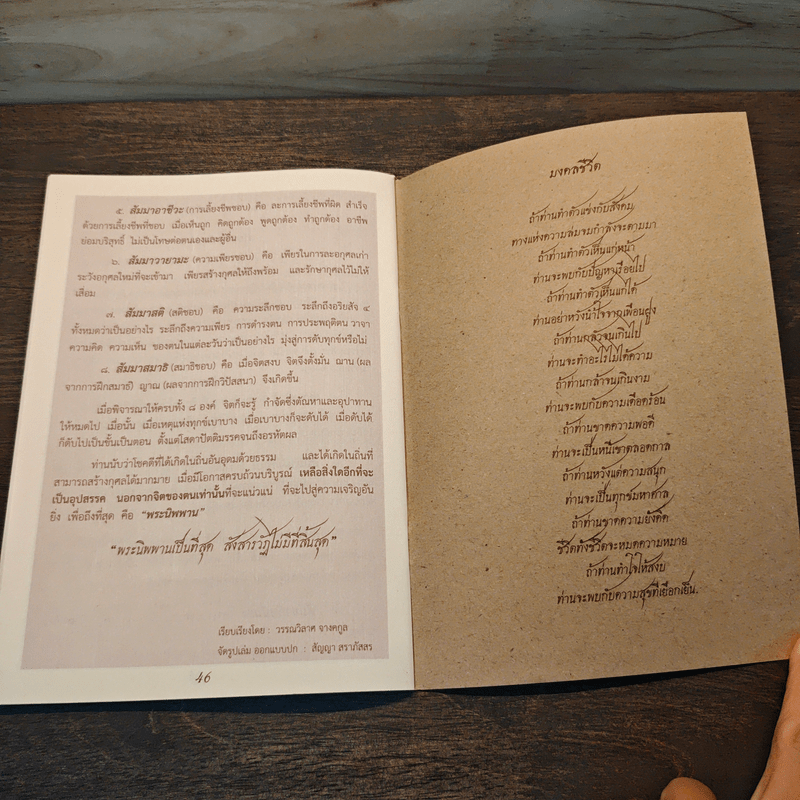 ๕. สัมมาอาชีวะ (การเลี้ยงชีพชอบ) คือ ละการเลี้ยงชีพที่ผิด สำเร็จ
ด้วยการเลี้ยงชีพที่ชอบ เมื่อเห็นถูก คิดถูกต้อง พูดถูกต้อง ทำถูกต้อง อาชีพ
ย่อมบริสุทธิ์ ไม่เป็นโทษต่อตนเองและผู้อื่น
๖. สัมมาวายามะ (ความเพียรชอบ) คือ เพียรในการละอกุศลเก่า
ระวังอกุศลใหม่ที่จะเข้ามา เพียรสร้างกุศลให้ถึงพร้อม และรักษากุศลไว้ไม่ให้
เสื่อม
๗. สัมมาสติ (สติชอบ) คือ ความระลึกชอบ ระลึกถึงอริยสัจ ๔
ทั้งหมดว่าเป็นอย่างไร ระลึกถึงความเพียร การดำรงตน การประพฤติตน วาจา
ความคิด ความเห็น ของตนในแต่ละวันว่าเป็นอย่างไร มุ่งสู่การดับทุกข์หรือไม่
๘. สัมมาสมาธิ (สมาธิชอบ) คือ เมื่อจิตสงบ จิตจึงตั้งมั่น ฌาน (ผล
จากการฝึกสมาธิ) ญาณ (ผลจากการฝึกวิปัสสนา) จึงเกิดขึ้น
เมื่อพิจารณาให้ครบทั้ง ๘ องค์ จิตก็จะรู้ กำจัดซึ่งตัณหาและอุปาทาน
ให้หมดไป เมื่อนั้น เมื่อเหตุแห่งทุกข์เบาบาง เมื่อเบาบางก็จะดับได้ เมื่อดับได้
ก็ดับไปเป็นขั้นเป็นตอน ตั้งแต่โสดาปัตติมรรคจนถึงอรหัตผล
ท่านนับว่าโชคดีที่ได้เกิดในถิ่นอันอุดมด้วยธรรม และได้เกิดในถิ่นที่
สามารถสร้างกุศลได้มากมาย เมื่อมีโอกาสครบถ้วนบริบูรณ์ เหลือสิ่งใดอีกที่จะ
เป็นอุปสรรค นอกจากจิตของตนเท่านั้นที่จะแน่วแน่ ที่จะไปสู่ความเจริญอัน
ยิ่ง เพื่อถึงที่สุด คือ "พระนิพพาน"
"พระนิพพานเป็นที่สุด สังสารวัฏไม่มีที่สิ้นสุด"
เรียบเรียงโดย : วรรณวิลาศ จางคกูล
จัดรูปเล่ม ออกแบบปก : สัญญา สราภัสสร
46
มงคลชีวิต
ถ้าท่านทำตัวแข่งกับสังคม
ทางแห่งความล่มจมกำลังจะตามมา
ถ้าท่านทำตัวเห็นแก่หน้า
ท่านจะพบกับปัญหาเรื่อยไป
ถ้าท่านทำตัวเห็นแก่ได้
ท่านอย่าหวังน้ำใจจากเพื่อนฝูง
ถ้าท่านกลัวจนเกินไป
ท่านจะทำอะไรไม่ได้ความ
ถ้าท่านกล้าจนเกินงาม
ท่านจะพบกับความเดือดร้อน
ถ้าท่านขาดความพอดี
ท่านจะเป็นหนี้เขาตลอดกาล
ถ้าท่านหวังแต่ความสนุก
ท่านจะเป็นทุกข์มหาศาล
ถ้าท่านขาดความยั้งคิด
ชีวิตทั้งชีวิตจะหมดความหมาย
ถ้าท่านทำใจให้สงบ
ท่านจะพบกับความสุขที่เยือกเย็น.